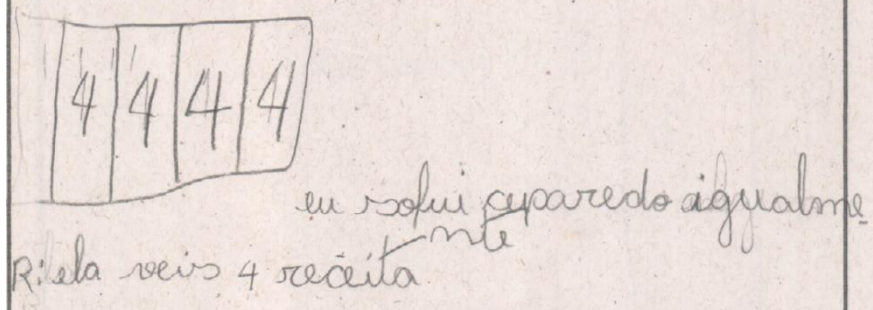 4 4 4 4
eu sofui ceparedo aigualme-
nte
R: ela veis 4 receita